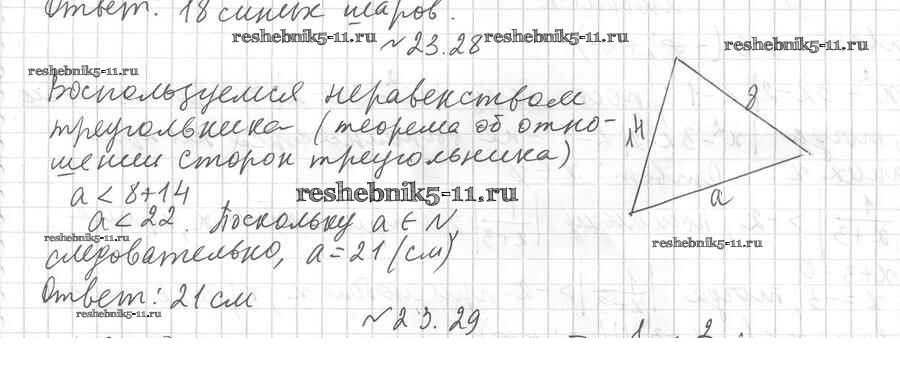 Ответ: 18 синих шаров.
reshebnik5-11.ru
№ 23.28
reshebnik5-11.ru
reshebnik5-11.ru
reshebnik5-11.ru
Воспользуемся неравенством
треугольника (теорема об отно-
шении сторон треугольника)
14
8
a
a < 8+14
reshebnik5-11.ru
a < 22. Поскольку a ∈ N,
reshebnik5-11.ru
reshebnik5-11.ru
следовательно, a = 21 (см)
Ответ: 21 см
reshebnik5-11.ru
№ 23.29